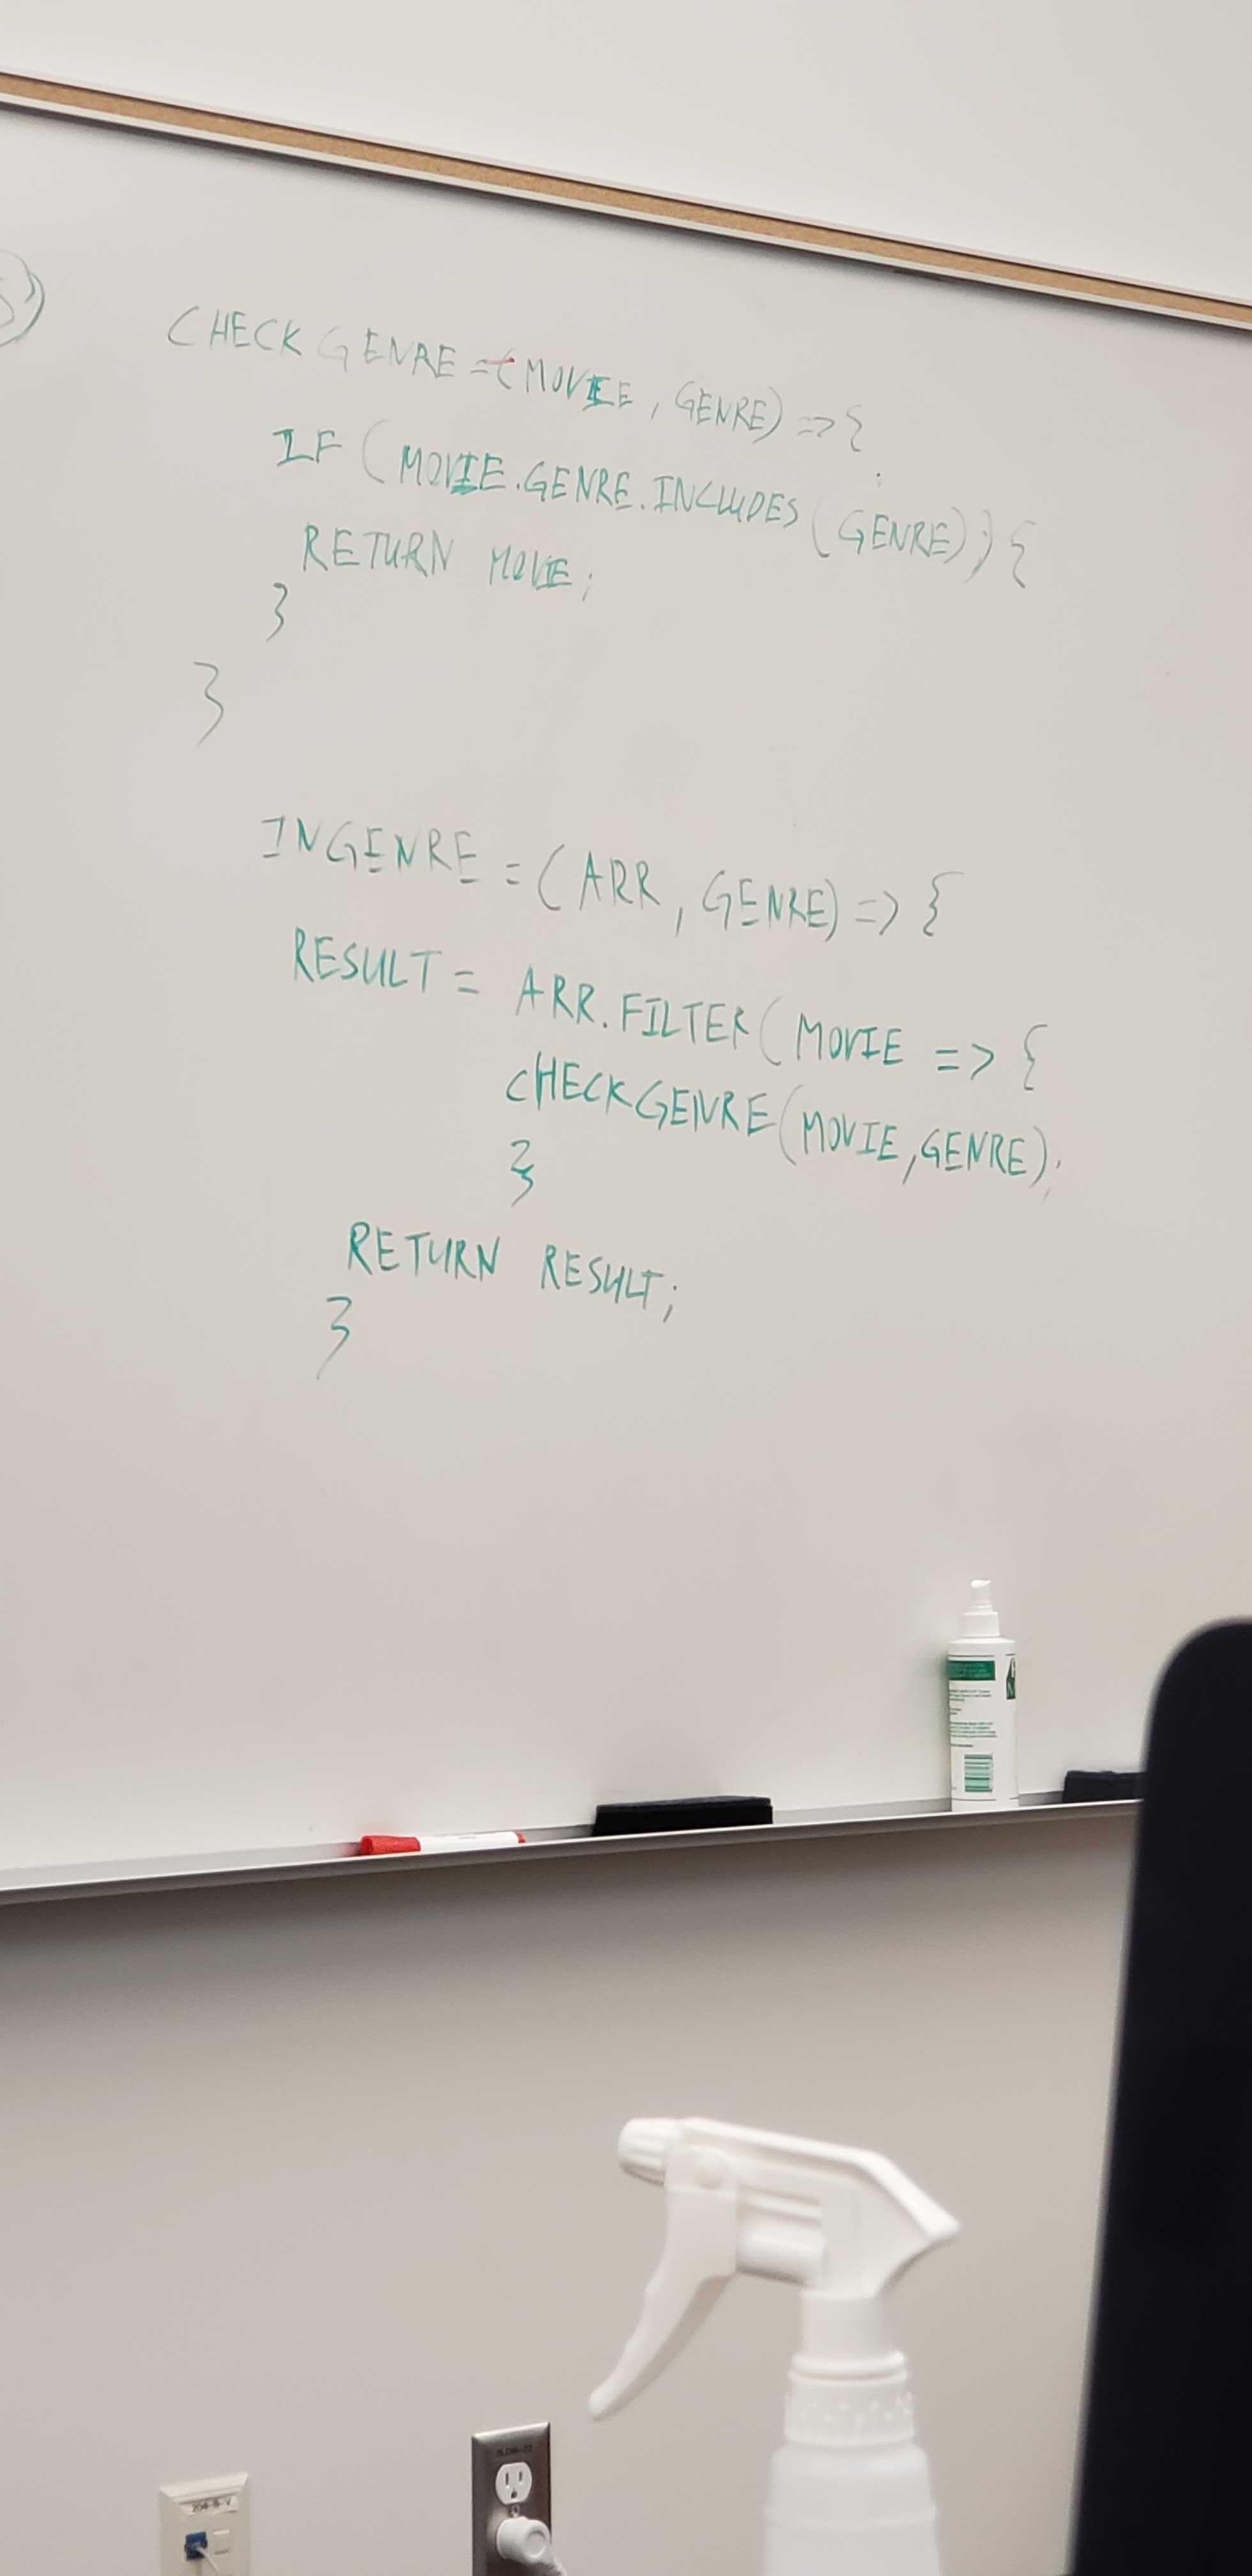 5)
CHECKGENRE = (MOVIE, GENRE) => {
IF (MOVIE.GENRE.INCLUDES(GENRE)) {
RETURN MOVIE;
}
}
INGENRE = (ARR, GENRE) => {
RESULT = ARR.FILTER(MOVIE => {
CHECKGENRE(MOVIE,GENRE);
}
RETURN RESULT;
}